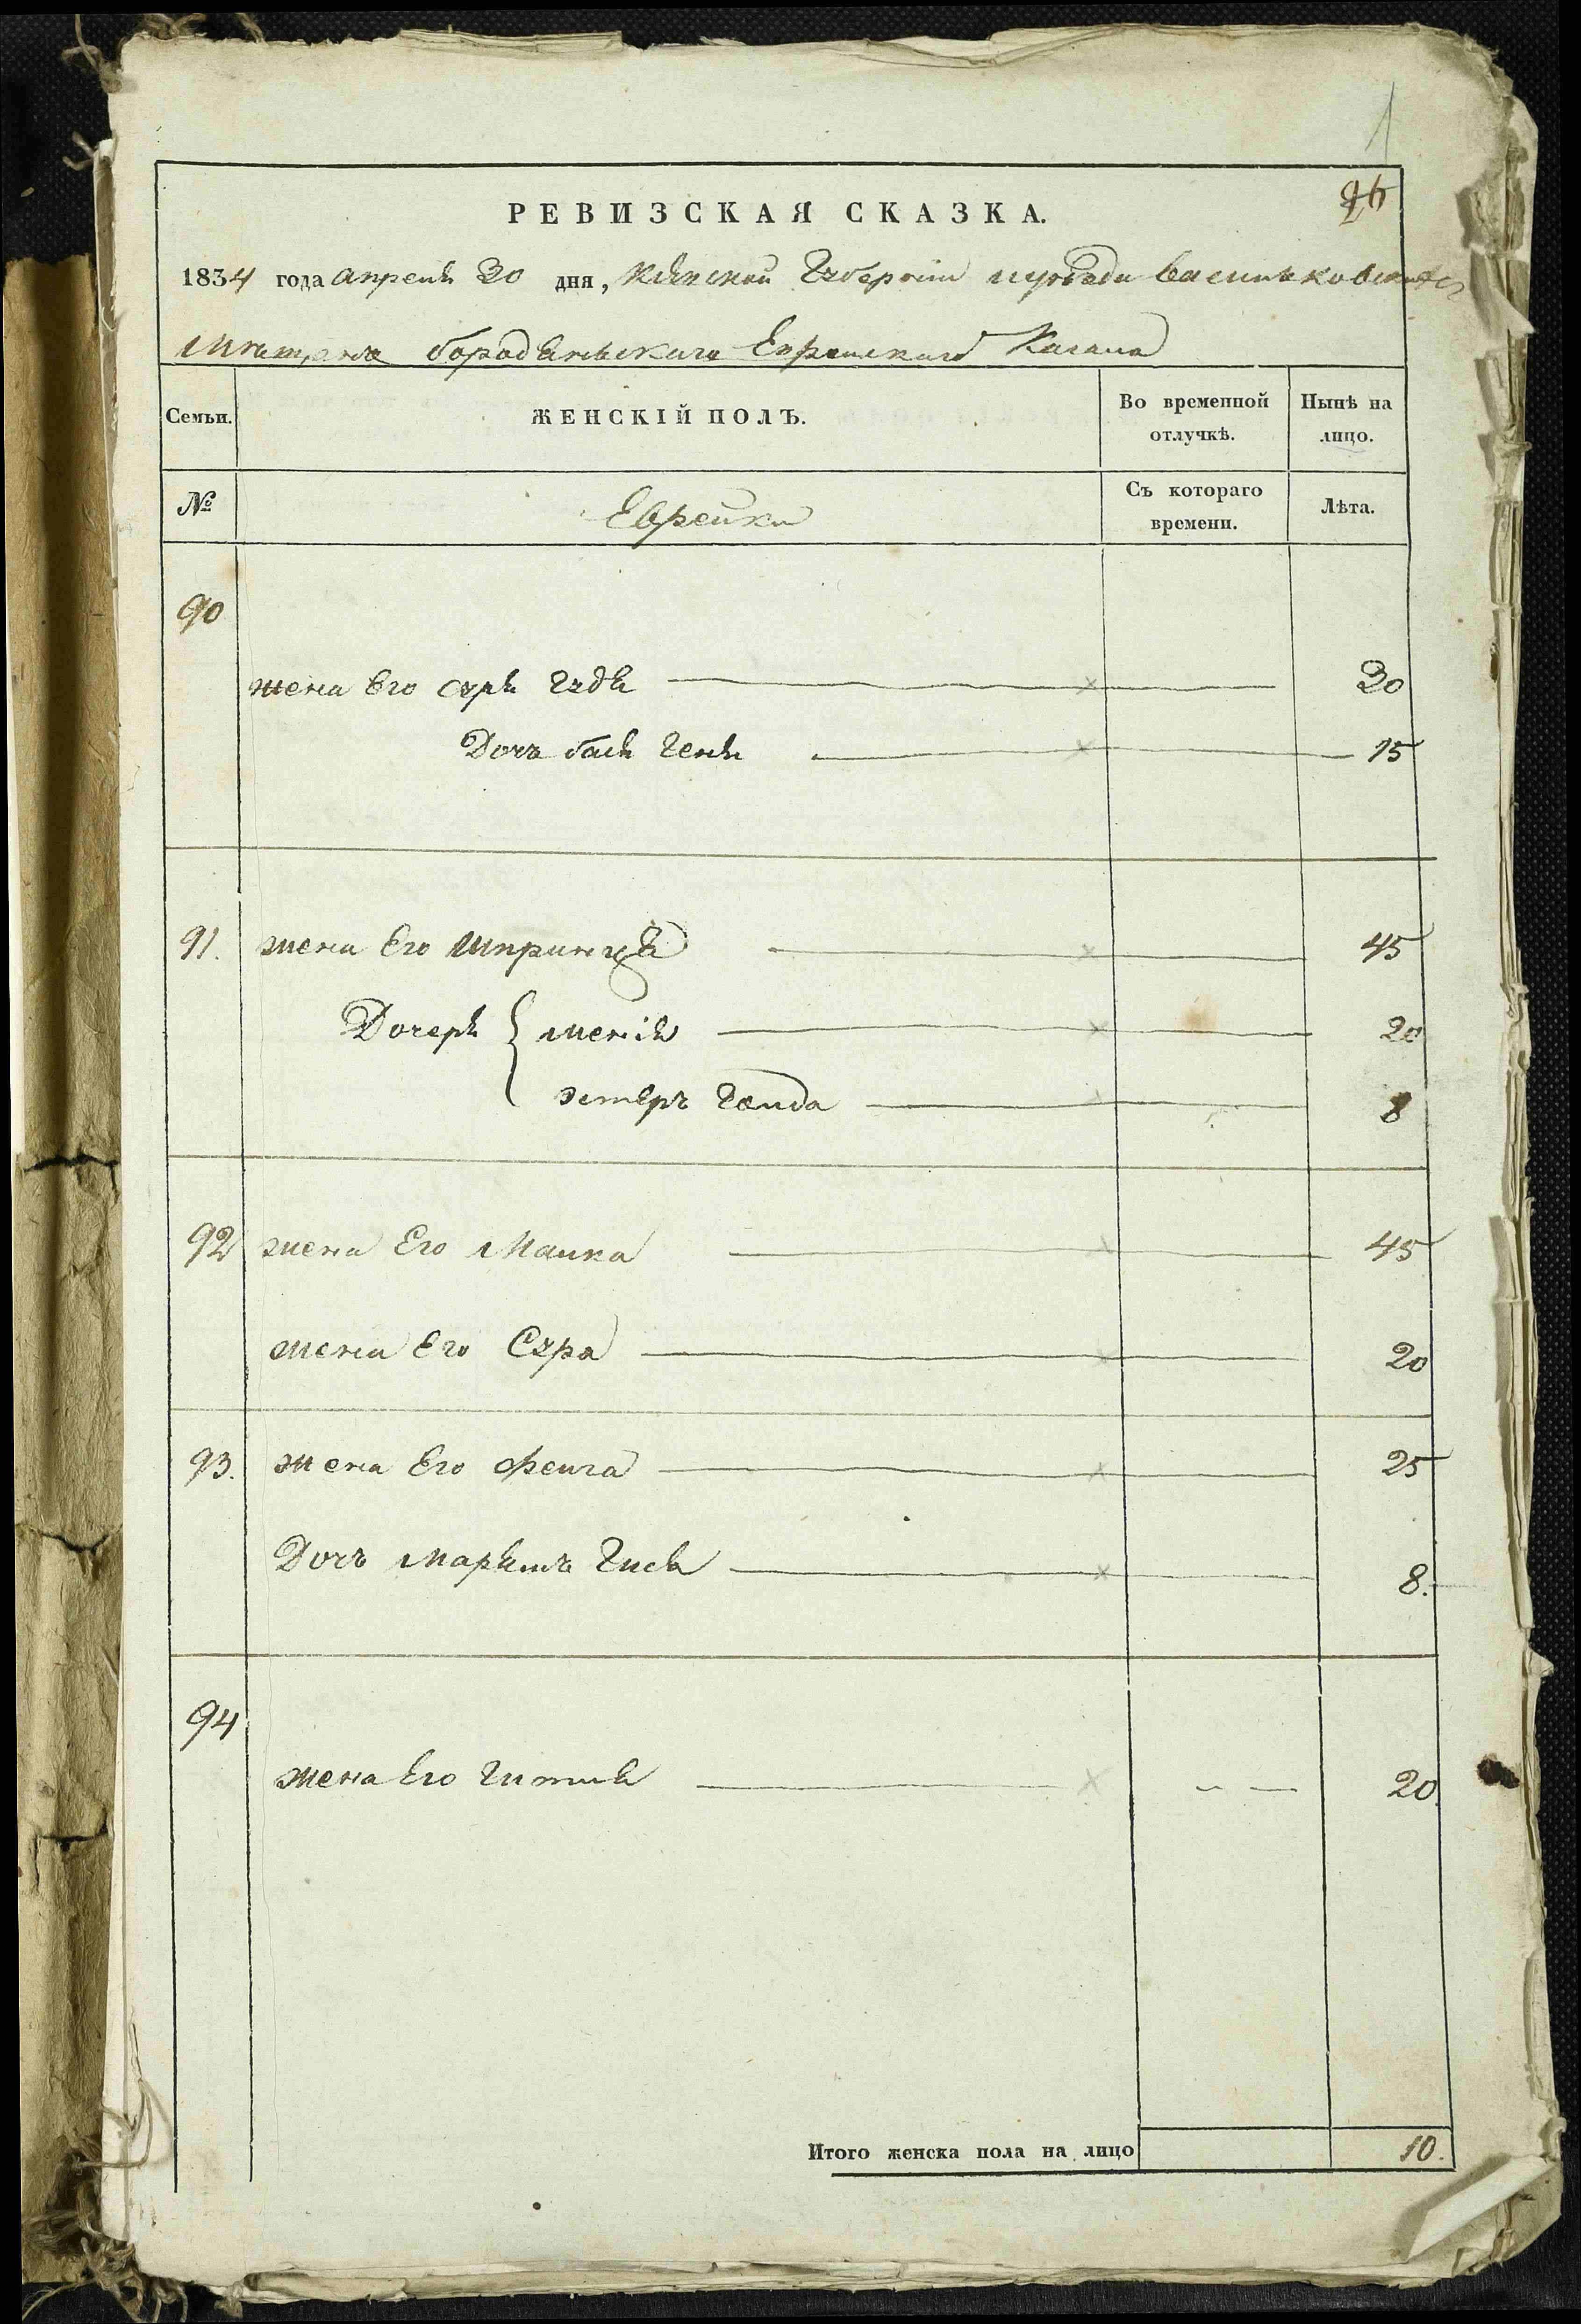 1
96
РЕВИЗСКАЯ СКАЗКА.
1834 года апреля 30 дня, Киевской Губернии Васильковскаго
Еврейскаго Кагала
Семьи. ЖЕНСКІЙ ПОЛЪ. Во временной отлучкѣ. Нынѣ на лицо.
№ Еврейки Съ котораго времени. Лѣта.
90
жена Его сура 30
Дочъ бася геня 15
91. жена Его Шпринца 45
Дочери 20
эстеръ 8
92 жена Его Малка 45
жена Его Сура 20
93. жена Его Фейга 25
Дочъ 8.
94
жена Его гитля 20.
Итого женска пола на лицо 10.